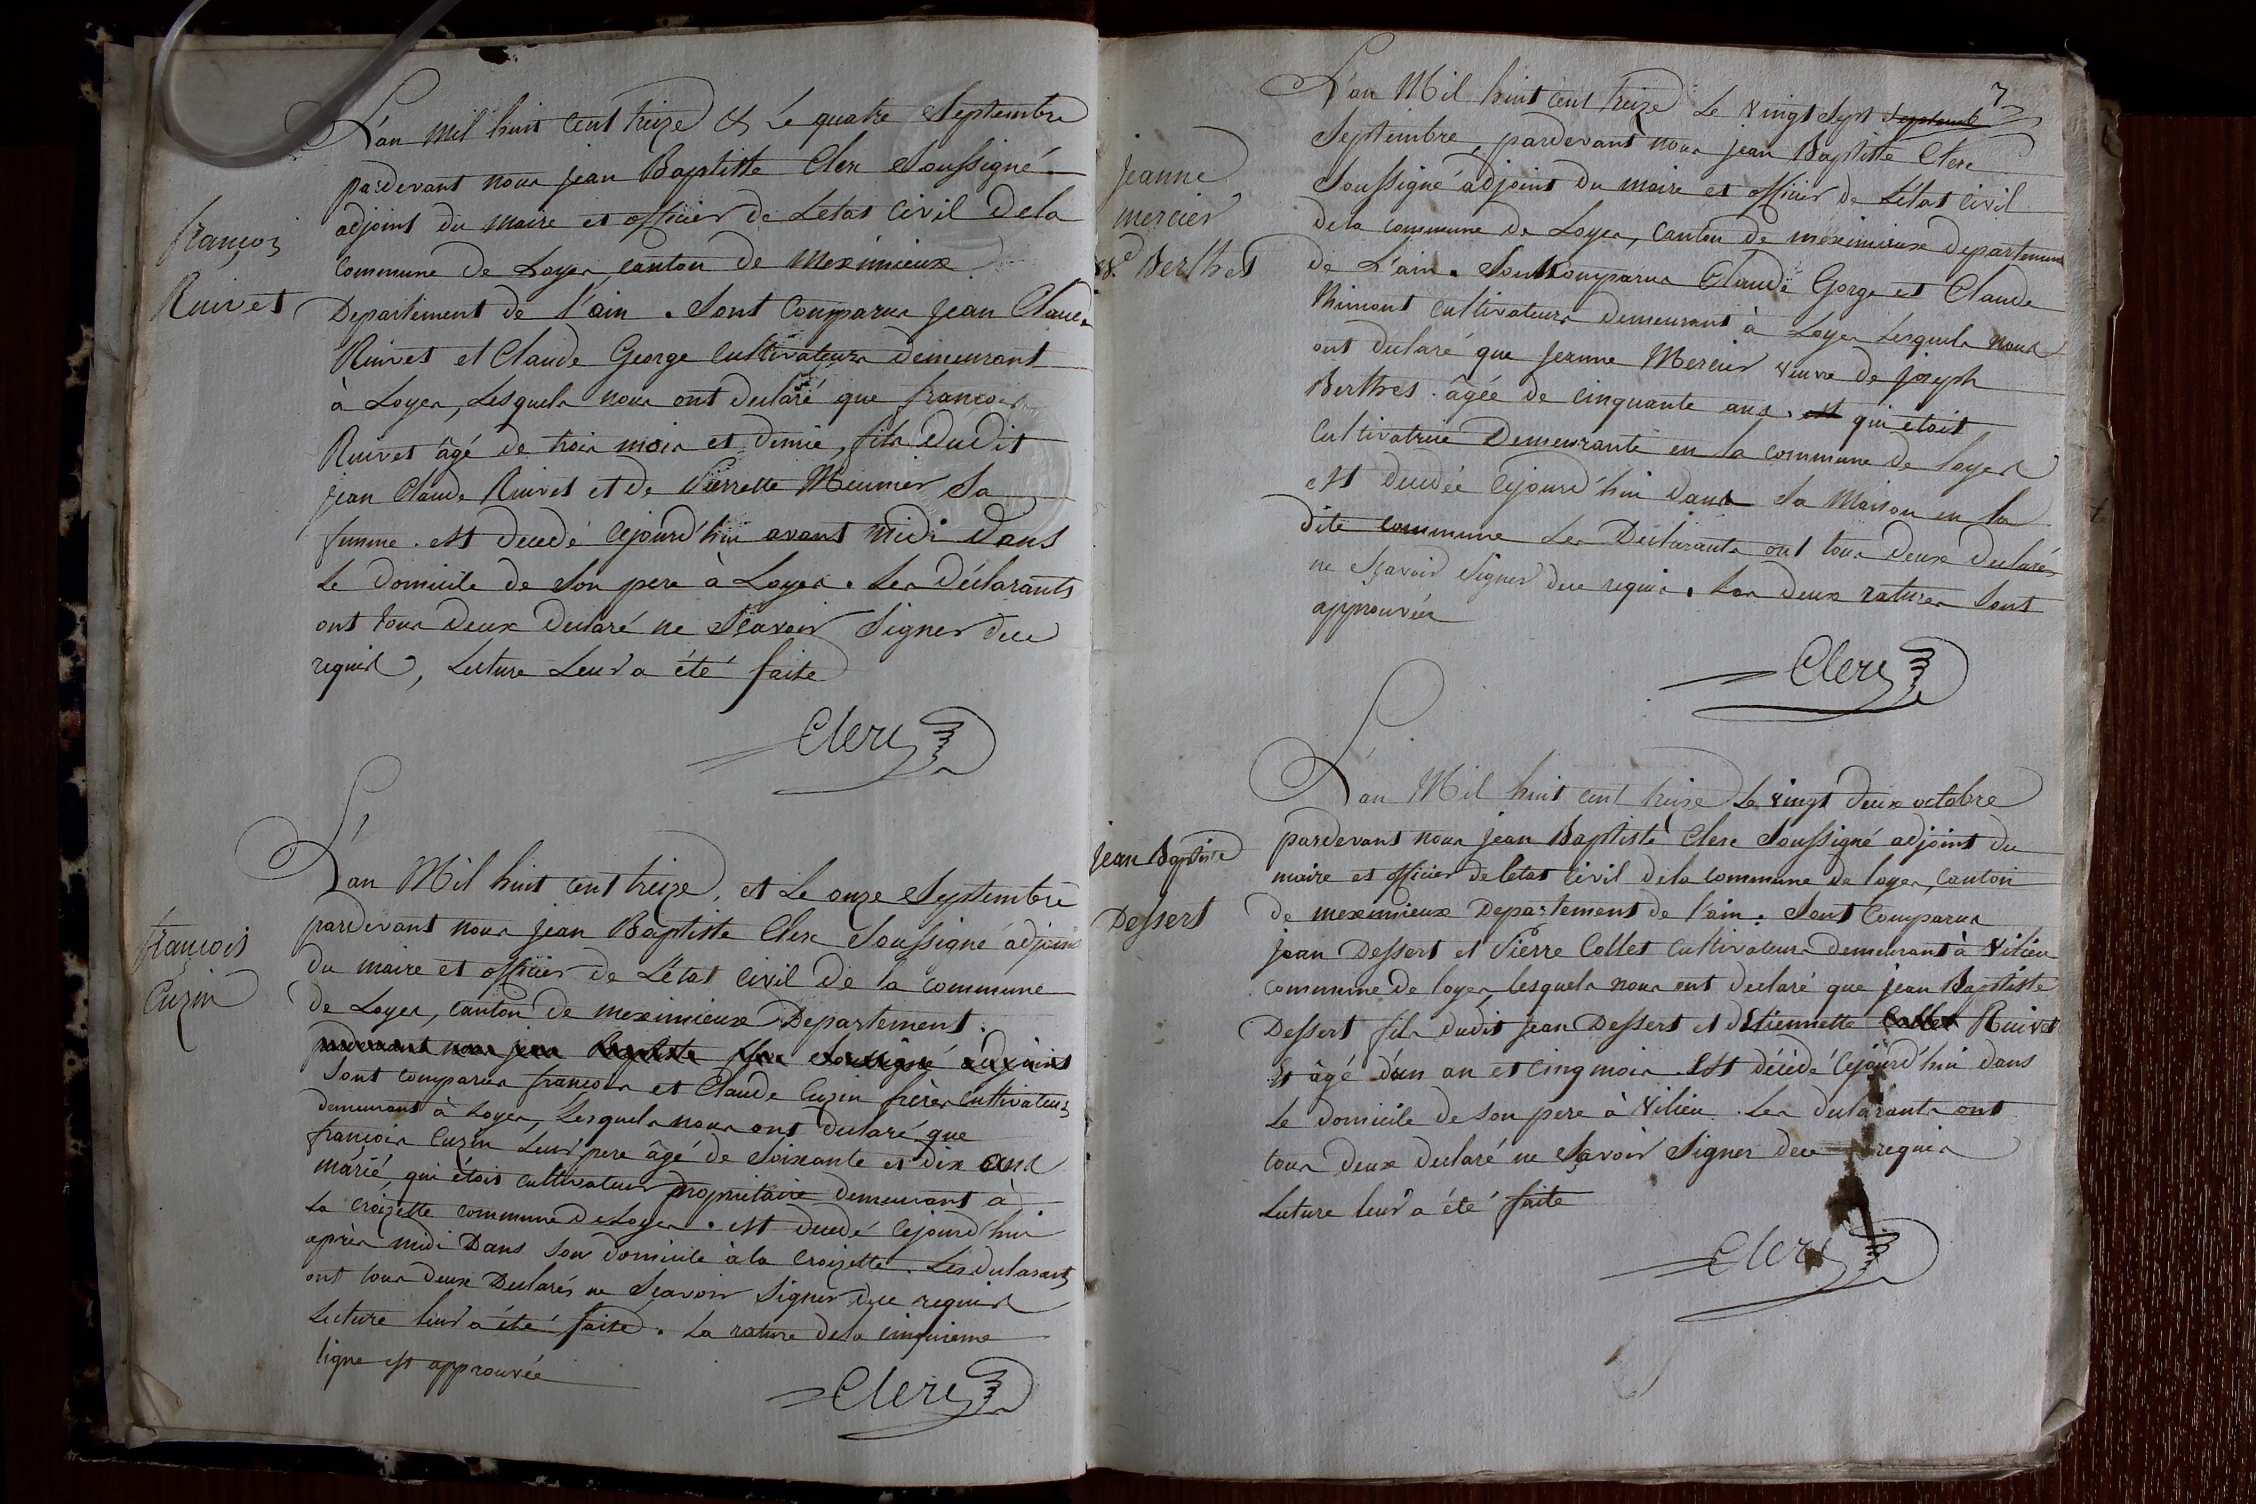 françois
Ruivet
L'an mil huit cent treize & Le quatre Septembre
pardevant nous jean Baptiste Clerc Soussigné
adjoint du maire et officier de Letat Civil dela
Commune de Loyes canton de Meximieux
Departement de l'ain. Sont Comparus jean Claude
Ruivet et Claude George Cultivateurs demeurant
à Loyes, Lesquels nous ont declaré que francois
Ruivet âgé de trois mois et demie, fils dudit
jean Claude Ruivet et de Pierrette Meunier Sa
femme. est decedé Cejourd'hui avant midi dans
Le domicile de Son pere à Loyes. Les déclarants
ont tous deux declaré ne Sçavoir Signer de ce
requis, Lecture Leur a été faite
Clerc
françois
Cuzin
L'an Mil huit cent treize, et Le onze Septembre
pardevant nous jean Baptiste Clerc Soussigné adjoint
du maire et officier de L'état civil de la commune
de Loyes, canton de meximieux Departement.
pardevant nous jean Baptiste Clerc Soussigné adjoint
Sont comparus francois et Claude Cuzin frères Cultivateurs
demeurant à Loyes, Lesquels nous ont declaré que
françois Cuzin Leur pere âgé de Soixante et dix ans
marié, qui étois cultivateur propriétaire demeurant à
La Croizette commune de Loyes. est decedé Cejourd'hui
après midi Dans Son domicile à la Croizette. Les declarants
ont tous deux Declarés ne Sçavoir Signer de ce requis
Lecture leur a été faite. La rature dela cinquieme
ligne est approuvée
Clerc
7
jeanne
mercier
Ve Berthet
L'an Mil huit cent treize Le vingt Sept Septembre
Septembre, pardevant nous jean Baptiste Clerc
Soussigné adjoint du maire et officier de L'état civil
dela commune de Loyes, canton de meximieux departement
de L'ain. Sont Comparus Claude Gorge et Claude
cultivateurs demeurant à Loyes Lesquels nous
ont declaré que Jeanne Mercier veuve de joseph
Berthet. âgée de cinquante ans. et qui étoit
Cultivatrice Demeurante en la commune de Loyes
est decedée Cejourd'hui dans Sa Maison en la
dite commune Les Déclarants ont tous deux declarés
ne Sçavoir Signer de ce requis. Les deux ratures Sont
approuvées
Clerc
jean Baptiste
Dessert
L'an Mil huit cent treize Le vingt deux octobre
pardevant nous jean Baptiste Clerc Soussigné adjoint du
maire et officier de letat Civil dela commune de loyes, canton
de meximieux Departement de l'ain. Sont Comparus
jean Dessert et Pierre Collet cultivateurs demeurant à Vilieu
commune de loyes lesquels nous ont declaré que jean Baptiste
Dessert fils dudit jean Dessert et d'Etiennette Collet Ruivet
Et âgé d'un an et cinq mois. Est décédé Cejourd'hui dans
Le domicile de Son pere à Vilieu. Les declarants ont
tous deux declaré ne Sçavoir Signer de ce requis
Lecture leur a été faite
Clerc